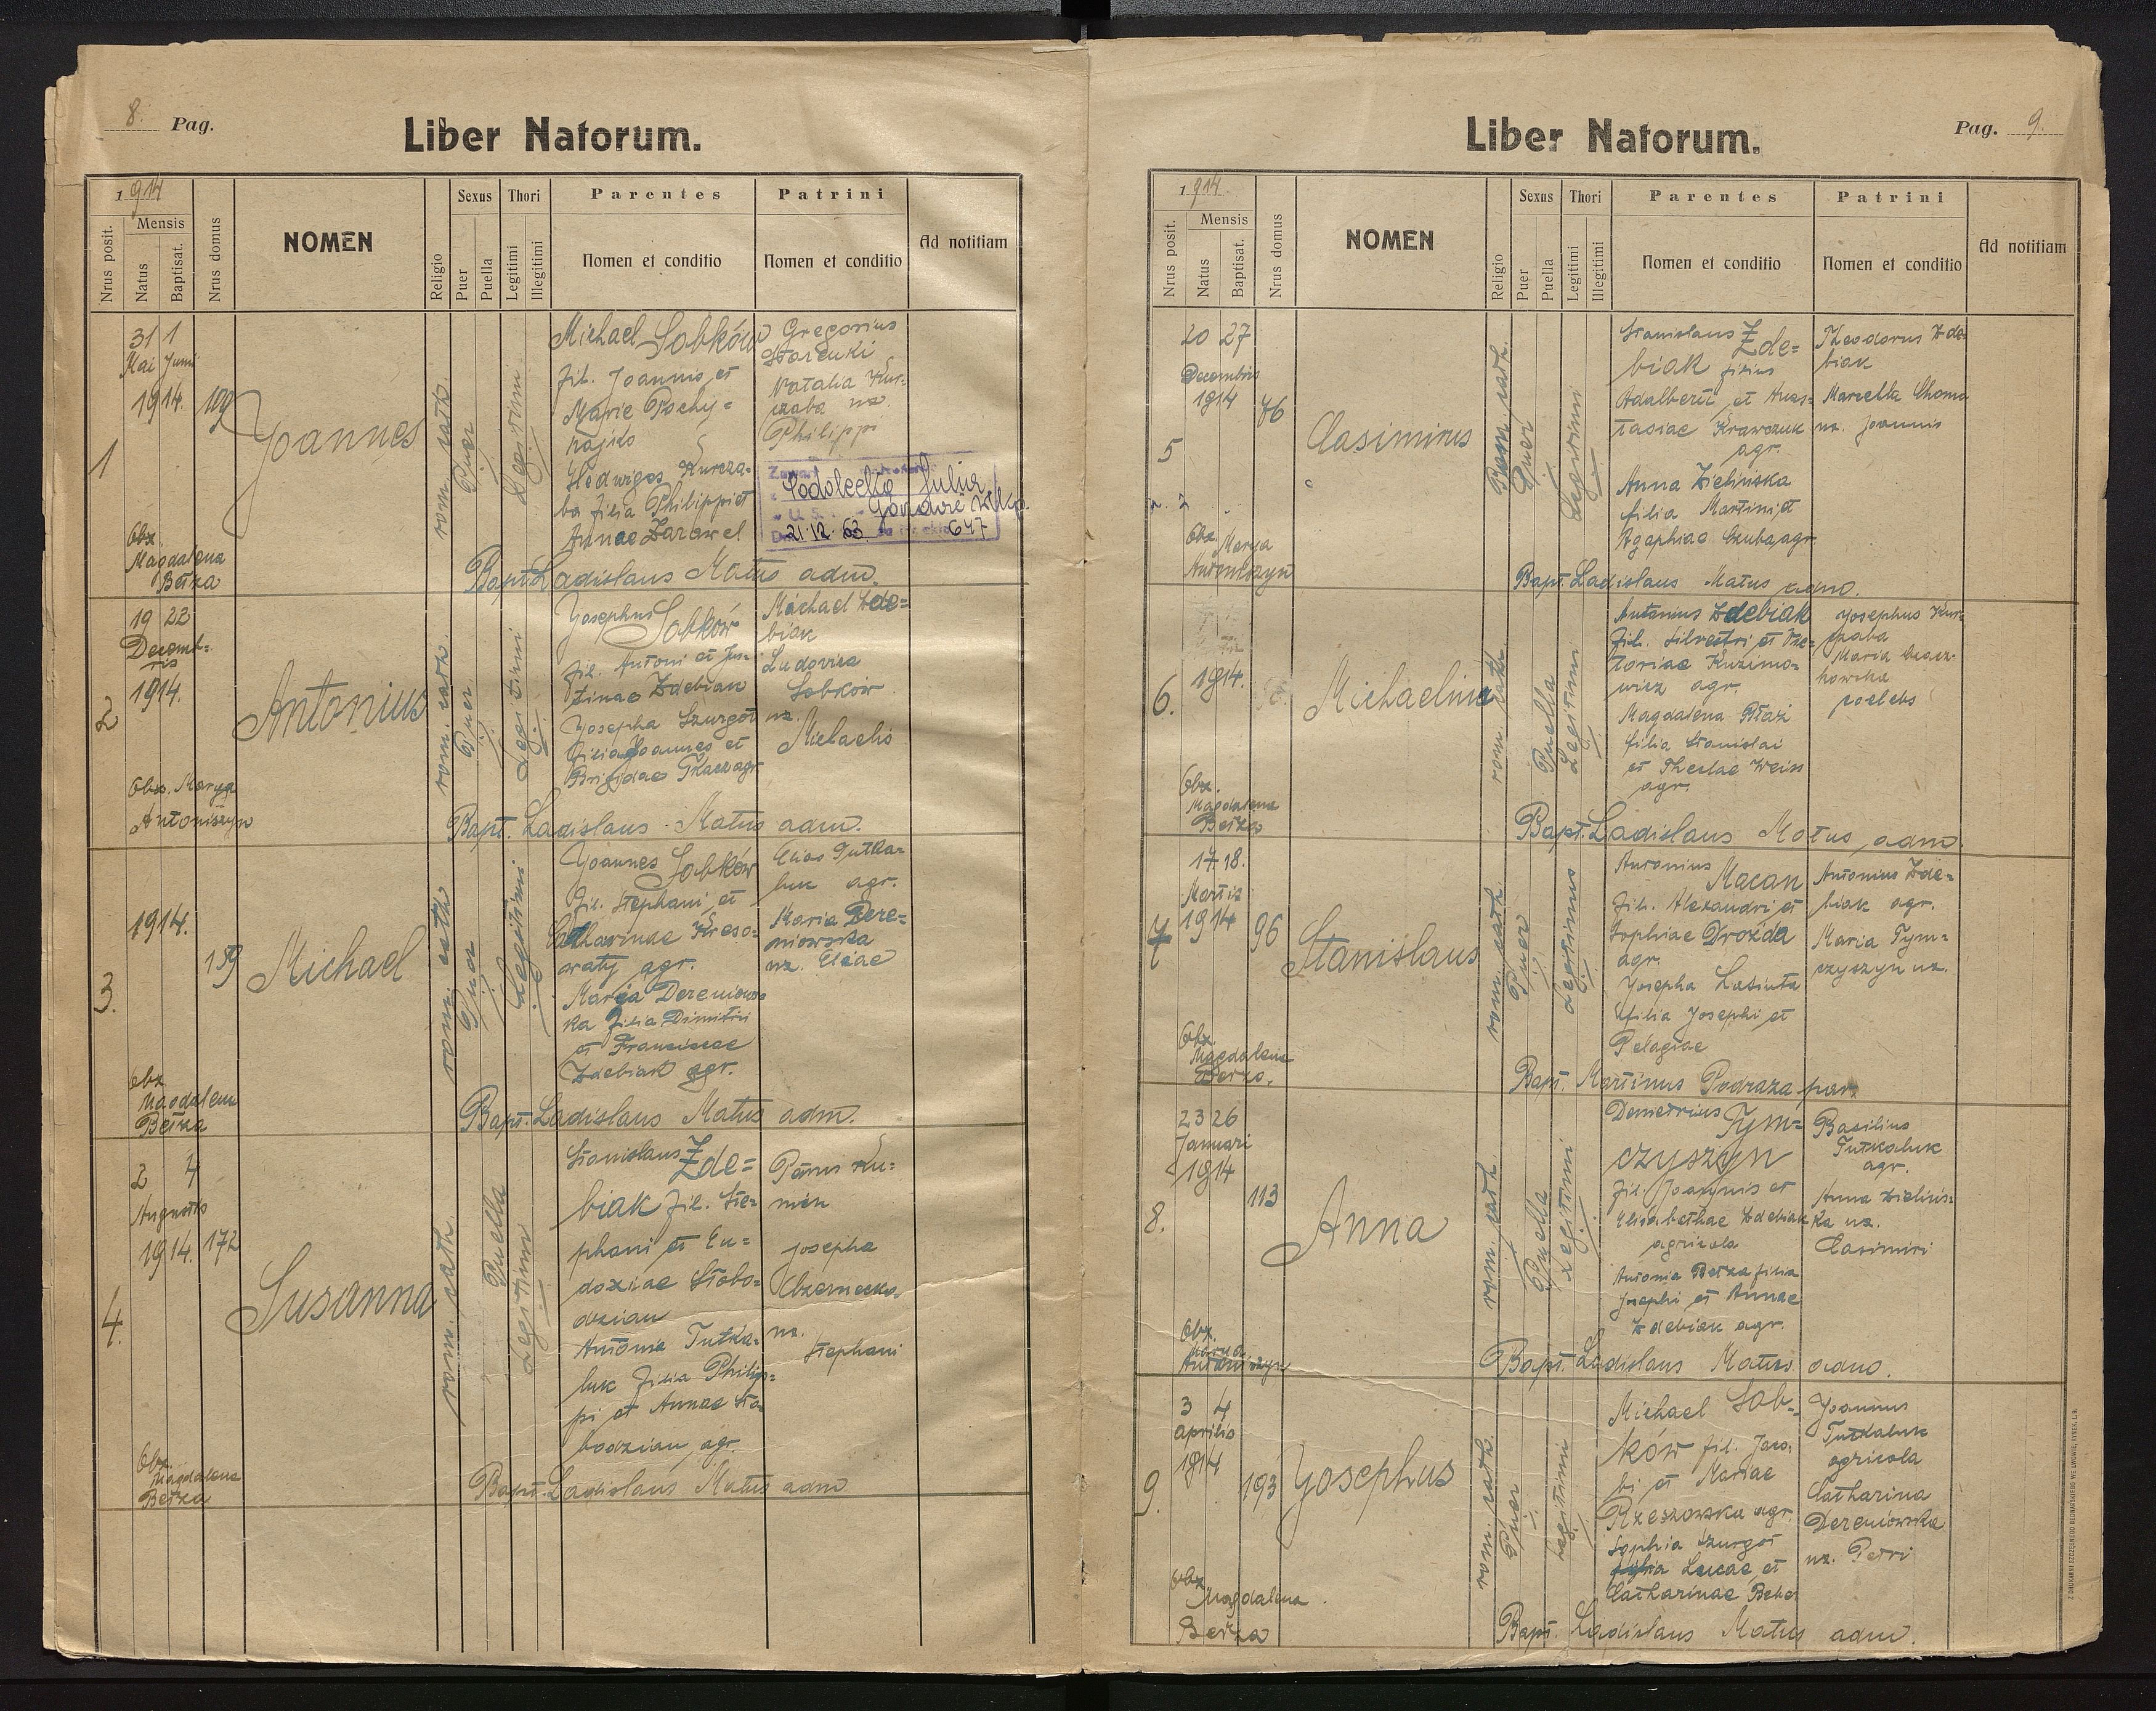 8. Pag.
Liber Natorum.
1914
Nrus posit.
Mensis
Natus
Baptisat.
Nrus domus
NOMEN
Religio
Sexus
Puer
Puella
Thori
Legitimi
Illegitimi
Parentes
Nomen et conditio
Patrini
Nomen et conditio
Ad notitiam
1
31 1
Mai Juni
1914. 109
Joannes
rom. cath.
Puer
Legitimi
Michael Sobków
fil. Joannis et
Marie
Hedwiges Kurcza-
ba filia Philippi et
Annae Zarawel
Gregorius
Natalia Kur-
czaba ux.
Philippi
Julia
21.12.63 647
Obx
Magdalena
Betza
Bapt. Ladislaus Matus adm.
2
19 22
Decemb-
ris
1914.
Antonius
rom. cath.
Puer
Legitimi
Josephus
Sobków
fil. Antoni et Jus-
tinae Zdebiak
Josepha Szurgot
filia Joannes et
Brigidae Tkacz agr.
Michael Zde-
biak
Ludovica
Sobków
ux.
Michaelis
Obx. Marya
Antoniszyn
Bapt. Ladislaus Matus adm.
3.
1914.
159
Michael
rom. cath.
Puer
Legitimi
Joannes Sobków
fil. Stephani et
Catharinae Kreso-
waty agr.
Marja Dereniows-
ka filia Dimitri
et Franciscae
Zdebiak agr.
Elias Tutka-
luk agr.
Maria Dere-
niowska
ux. Eliae
Obx
Magdalena
Betza
Bapt. Ladislaus Matus adm.
4.
2 4
Augustis
1914. 172
Susanna
rom. cath.
Puella
Legitimi
Stanislaus Zde-
biak fil. Ste-
phani et Eu-
doxiae Słobo-
dzian
Antonia Tutka-
luk filia Philip-
pi et Annae Sło-
bodzian agr.
Petrus Ku-
men
Josepha
Czernecka
ux.
Stephani
Obx.
Magdalena
Betza
Bapt. Ladislaus Matus adm
Liber Natorum.
Pag. 9.
1914
Nrus posit.
Mensis
Natus
Baptisat.
Nrus domus
NOMEN
Religio
Sexus
Puer
Puella
Thori
Legitimi
Illegitimi
Parentes
Nomen et conditio
Patrini
Nomen et conditio
Ad notitiam
5
20 27
Decembris
1914 76
Casimirus
Rom. cath.
Puer
Legitimi
Stanislaus Zde-
biak filius
Adalberti et Anas-
tasiae Krawczuk
agr.
Anna Zielińska
filia Martini et
Agaphiae Czuba agr.
Theodorus Zde-
biak
Marcella Choma
ux. Joannis
Obx Marya
Antoniszyn
Bapt. Ladislaus Matus adm.
6.
1914.
Michaelina
rom. cath
Puella
Legitimi
Antonius Zdebiak
fil. Silvestri et Vic-
toriae Kuzimo-
wicz agr.
Magdalena Błaż
filia Stanislai
et Theclae Weiss
agr.
Josephus Kur-
czaba
Maria
coelebs
Obx.
Magdalena
Betza
Bapt. Ladislaus Matus adm.
7
17 18.
Martis
1914 96
Stanislaus
rom. cath.
Puer
Legitimus
Antonius
Macan
fil. Alexandri et
Sophiae Drozda
agr.
Josepha Lasiuta
filia Josephi et
Pelagiae
Antonius Zde-
biak agr.
Maria Tym-
czyszyn ux.
Obx
Magdalena
Betza.
Bapt. Martinus Podraza par.
8.
23 26
Januari
1914
113
Anna
rom. cath.
Puella
Legitimi
Demetrius Tym-
czyszyn
fil. Joannis et
Elisabethae Zdebiak
agricola
Antonia Betza filia
Josephi et Annae
Zdebiak agr.
Basilius
Tutkaluk
agr.
Anna Zielińs-
ka ux.
Casimiri
Obx.
Marya
Antoniszyn
Bapt. Ladislaus Matus adm.
9.
3 4
Aprilis
1914
193
Josephus
rom. cath.
Puer
Legitimi
Michael Sob-
ków fil. Jaco-
bi et Mariae
Rzeszowska agr.
Sophia Szurgot
filia Lucae et
Catharinae Beher
Joannes
Tutkaluk
agricola
Catharina
Dereniowska
ux. Petri
Obx
Magdalena
Betza
Bapt. Ladislaus Matus adm.